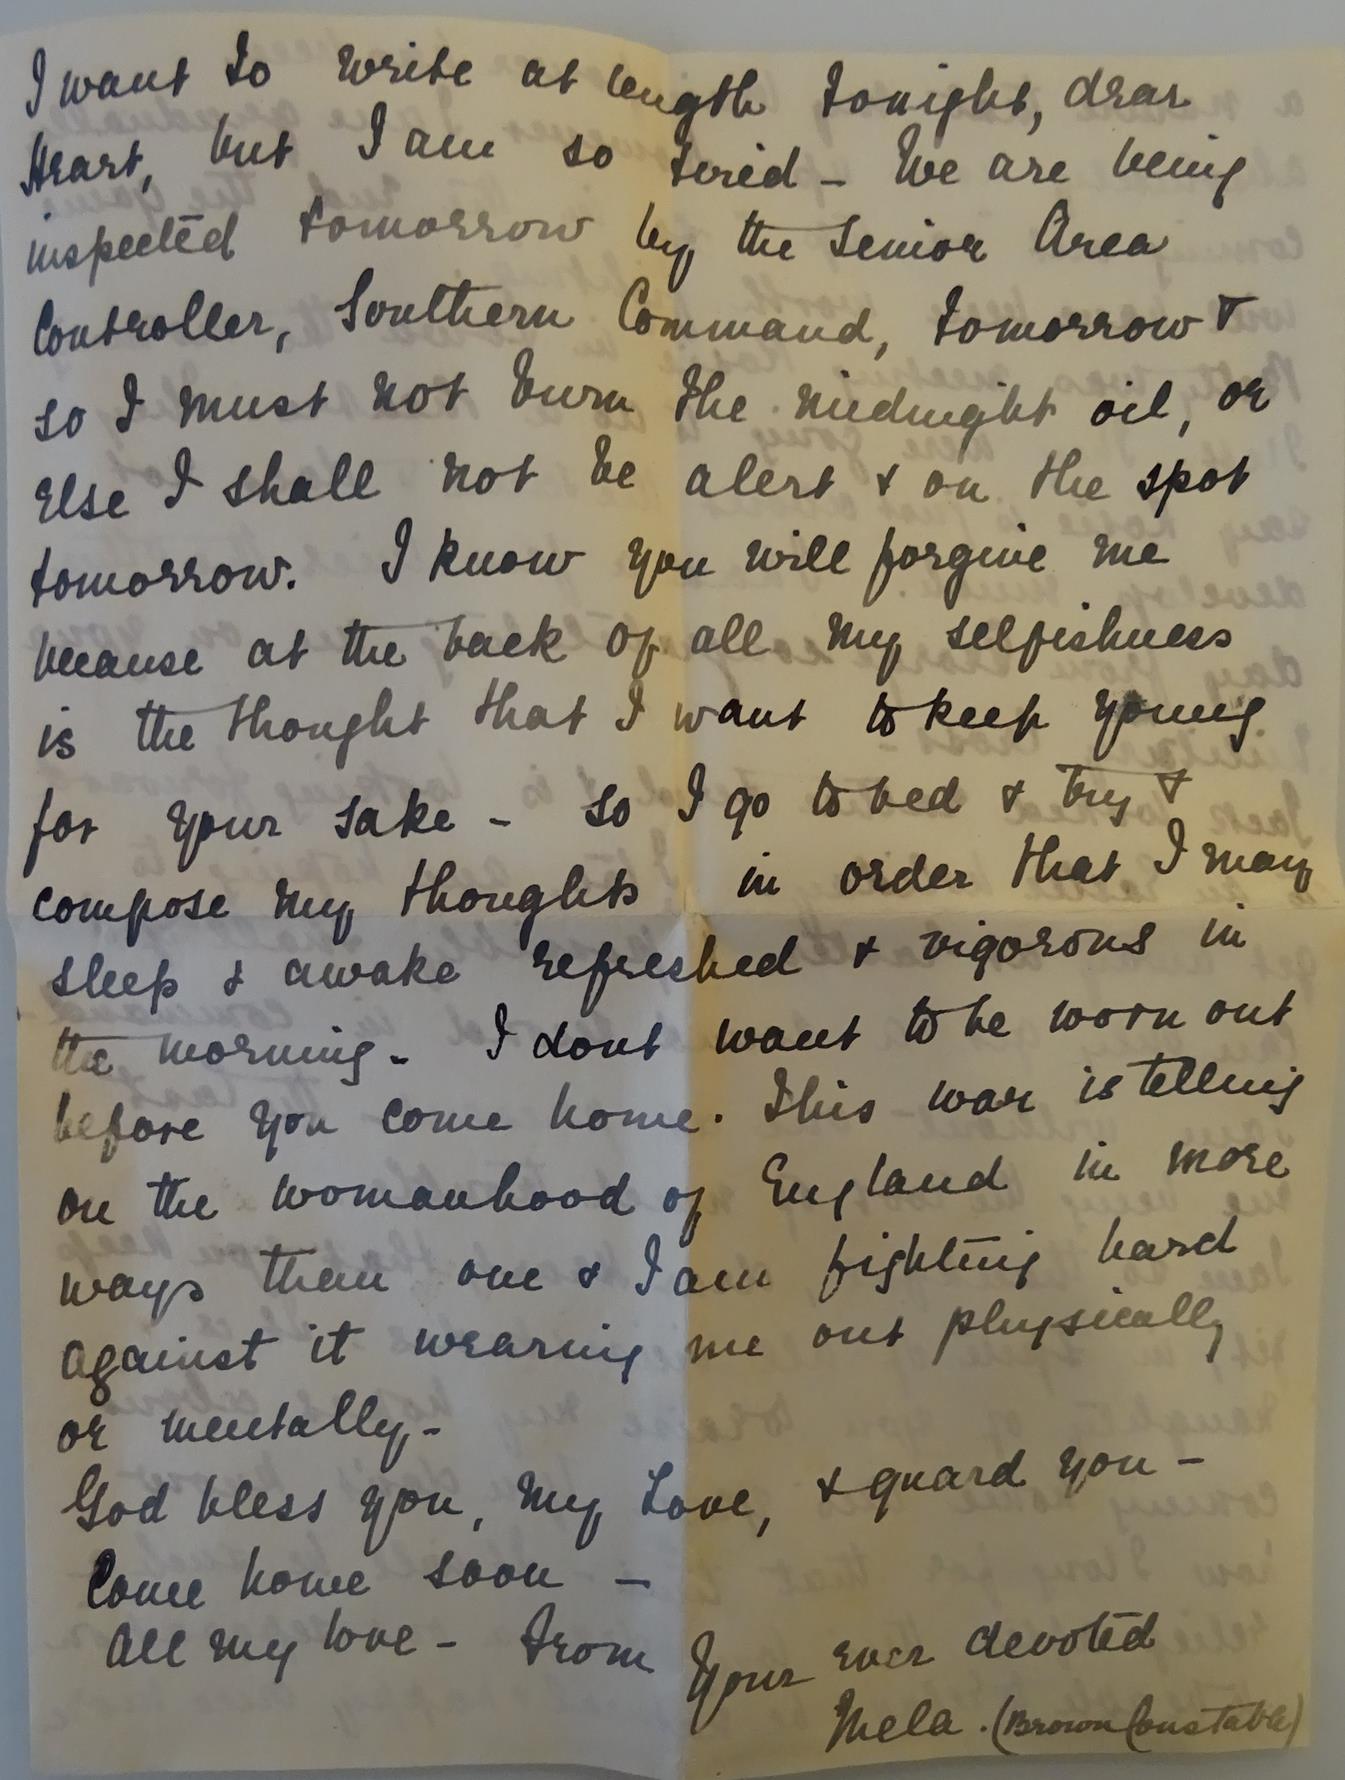 I want to write at length tonight, dear
Heart, but I am so tired - We are being
inspected tomorrow by the Senior Area
Controller, Southern Command, tomorrow &
so I must not burn the midnight oil, or
else I shall not be alert & on the spot
tomorrow. I know you will forgive me
because at the back of all my selfishness
is the thought that I want to keep young
for your sake - so I go to bed & try &
compose my thoughts in order that I may
sleep & awake refreshed & vigorous in
the morning - I dont want to be worn out
before you come home. This war is telling
on the womanhood of England in more
ways than one & I am fighting hard
against it wearing me out physically
or mentally -
God bless you, my Love, & guard you -
Come home soon -
All my love - From Your ever devoted
Mela. (Brown Constable)